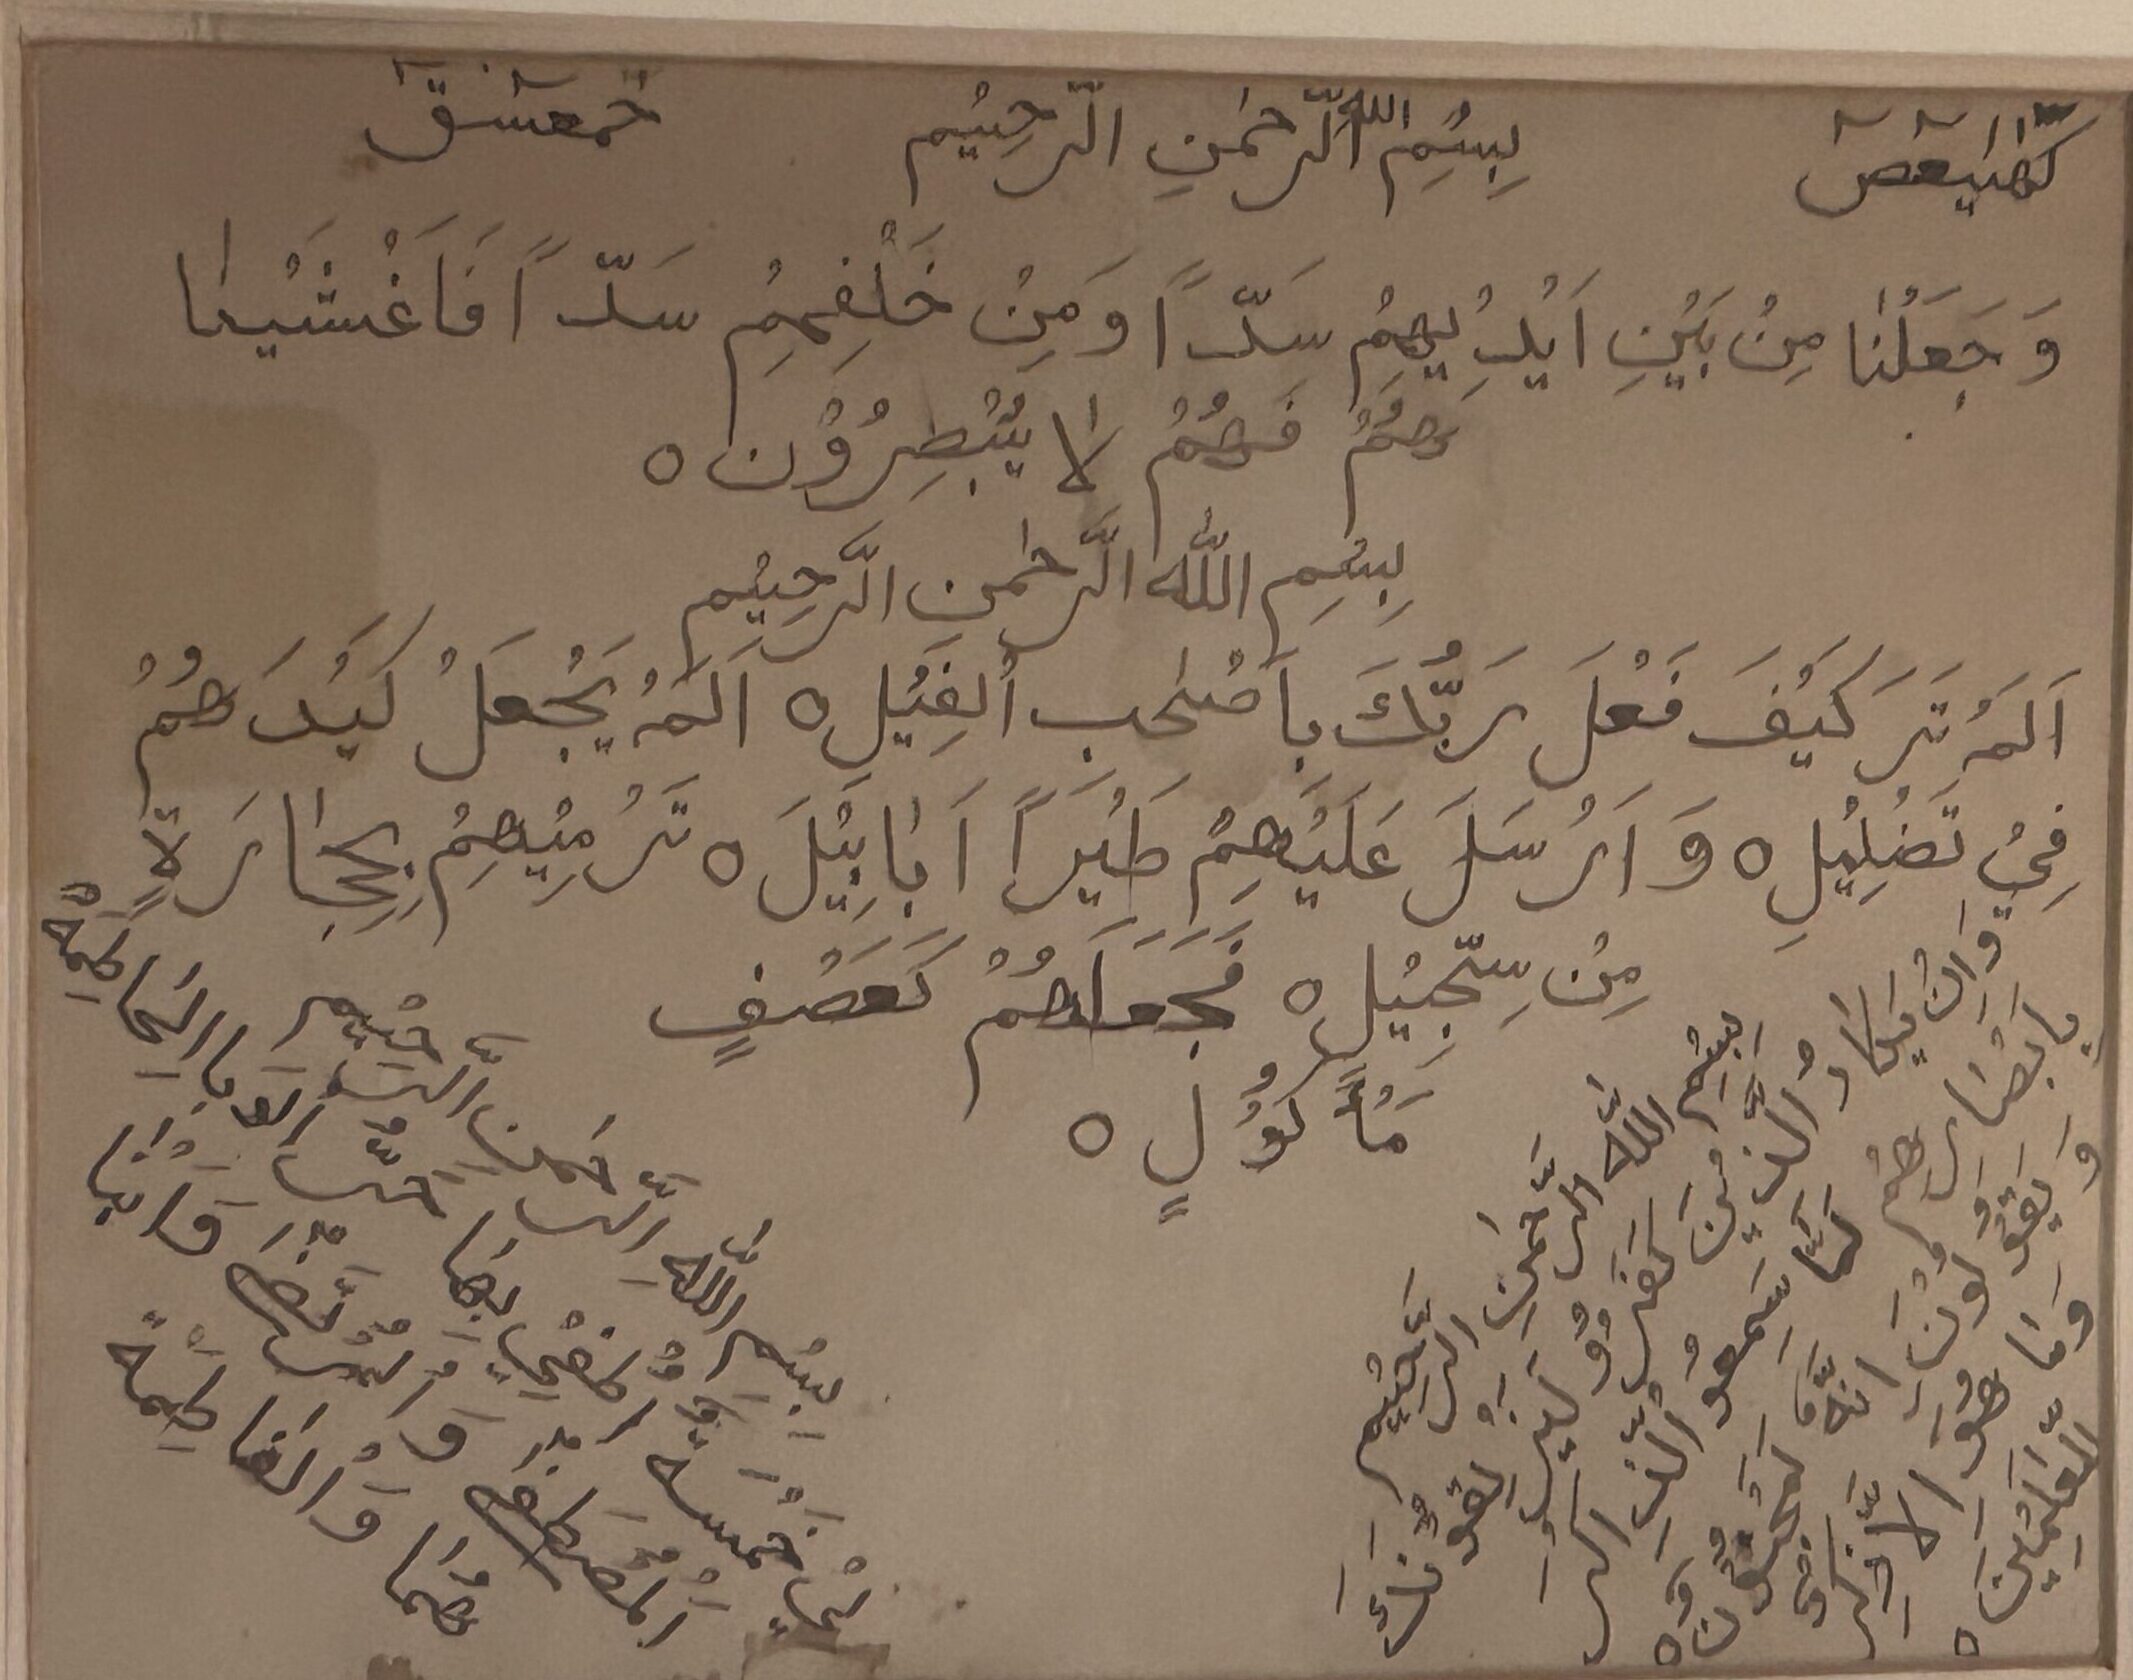 كٓهٰيٰعٓصٓ بِسْمِ اللّٰهِ الرَّحْمٰنِ الرَّحِيْم حٰمٓعٓسٓقٓ
وَجَعَلْنٰا مِنْ بَيْنِ اَيْدِيْهِمْ سَدّاً وَمِنْ خَلْفِهِمْ سَدّاً فَاَغْشَيْنٰا
هُمْ فَهُمْ لٰا يُبْصِرُوْن ه
بِسْمِ اللّٰهِ الرَّحْمٰنِ الرَّحِيْم
اَلَمْ تَرَ كَيْفَ فَعَلَ رَبُّكَ بِاَصْحٰبِ الْفِيْلِ ه اَلَمْ يَجْعَلْ كَيْدَهُمْ
فِيْ تَضْلِيْلٍ ه وَاَرْسَلَ عَلَيْهِمْ طَيْراً اَبٰابِيْلَ ه تَرْمِيْهِمْ بِحِجٰارَةٍ
مِنْ سِجِّيْلٍ ه فَجَعَلَهُمْ كَعَصْفٍ
مَاْكُوْلٍ ه
بِسْمِ اللّٰهِ الرَّحْمٰنِ الرَّحِيْم
وَاِنْ يَكَادُ الَّذِيْنَ كَفَرُوْ لَيُزْلِقُوْنَكَ
بِاَبْصَارِهِمْ لَمَّا سَمِعُو الذِّكْرَ
وَيَقُوْلُوْنَ اِنَّهُ لَمَجْنُوْن ه
وَمَا هُوَ اِلَّا ذِكْرٌ
لِلْعٰلَمِيْنَ ه
بِسْمِ اللّٰهِ الرَّحْمٰنِ الرَّحِيْم
لِيْ خَمْسَةٌ اُطْفِيْ بِهَا حَرَّ الْوَبَا الْحَاطِمَةْ
اَلْمُصْطَفٰى وَالْمُرْتَضٰى وَابْنَا
هُمَا وَالْفَاطِمَةْ